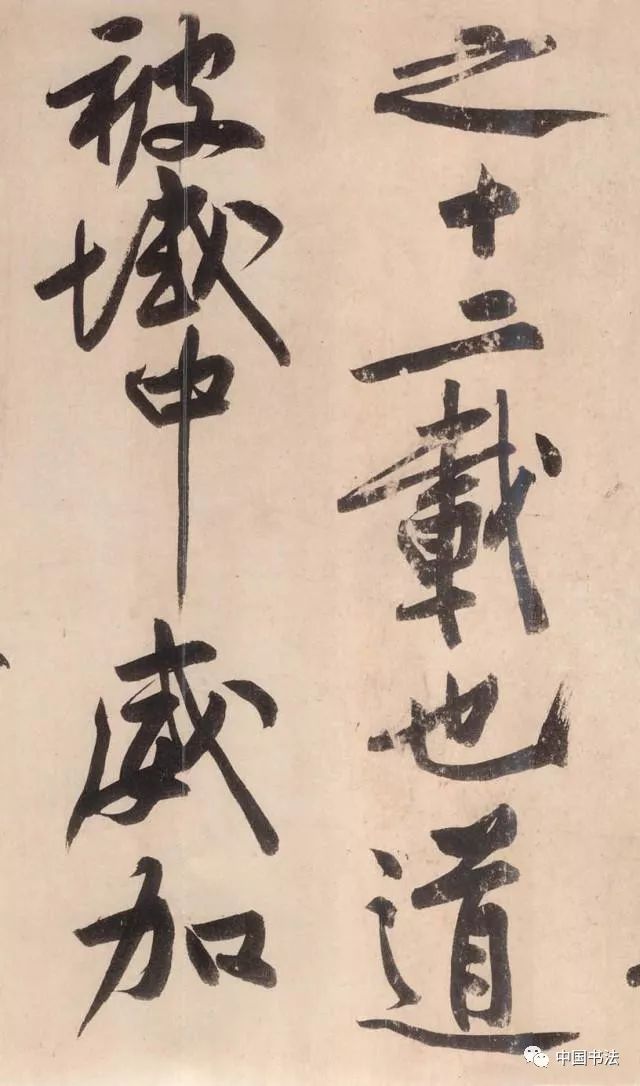 之十二載也道
被域中威加
中国书法